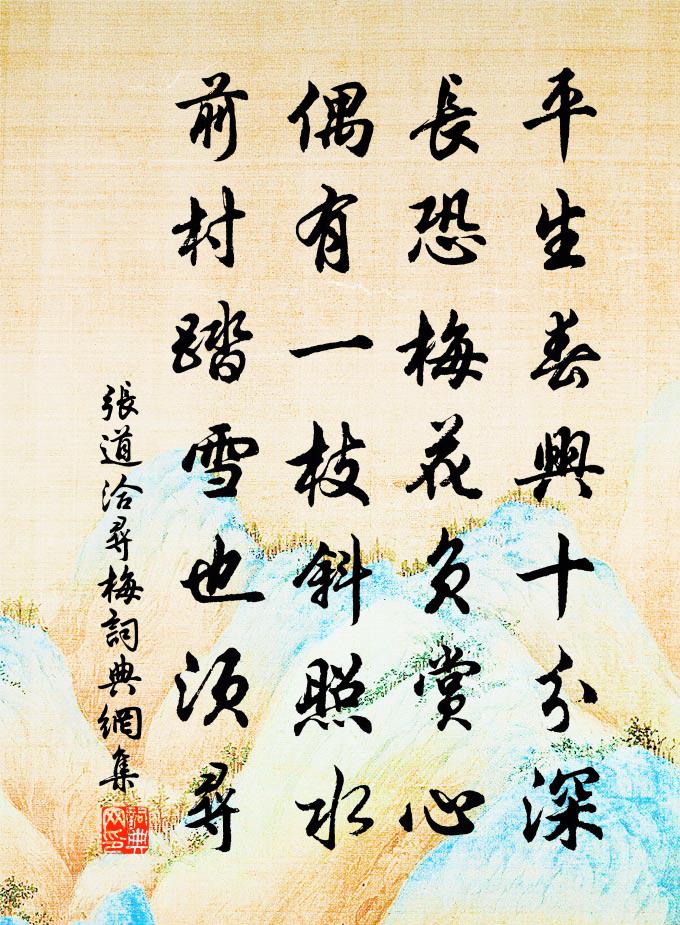 平生春興十分深
長恐梅花負賞心
偶有一枝斜照水
前村踏雪也須尋
張道洽尋梅詞典網集
詞典網印